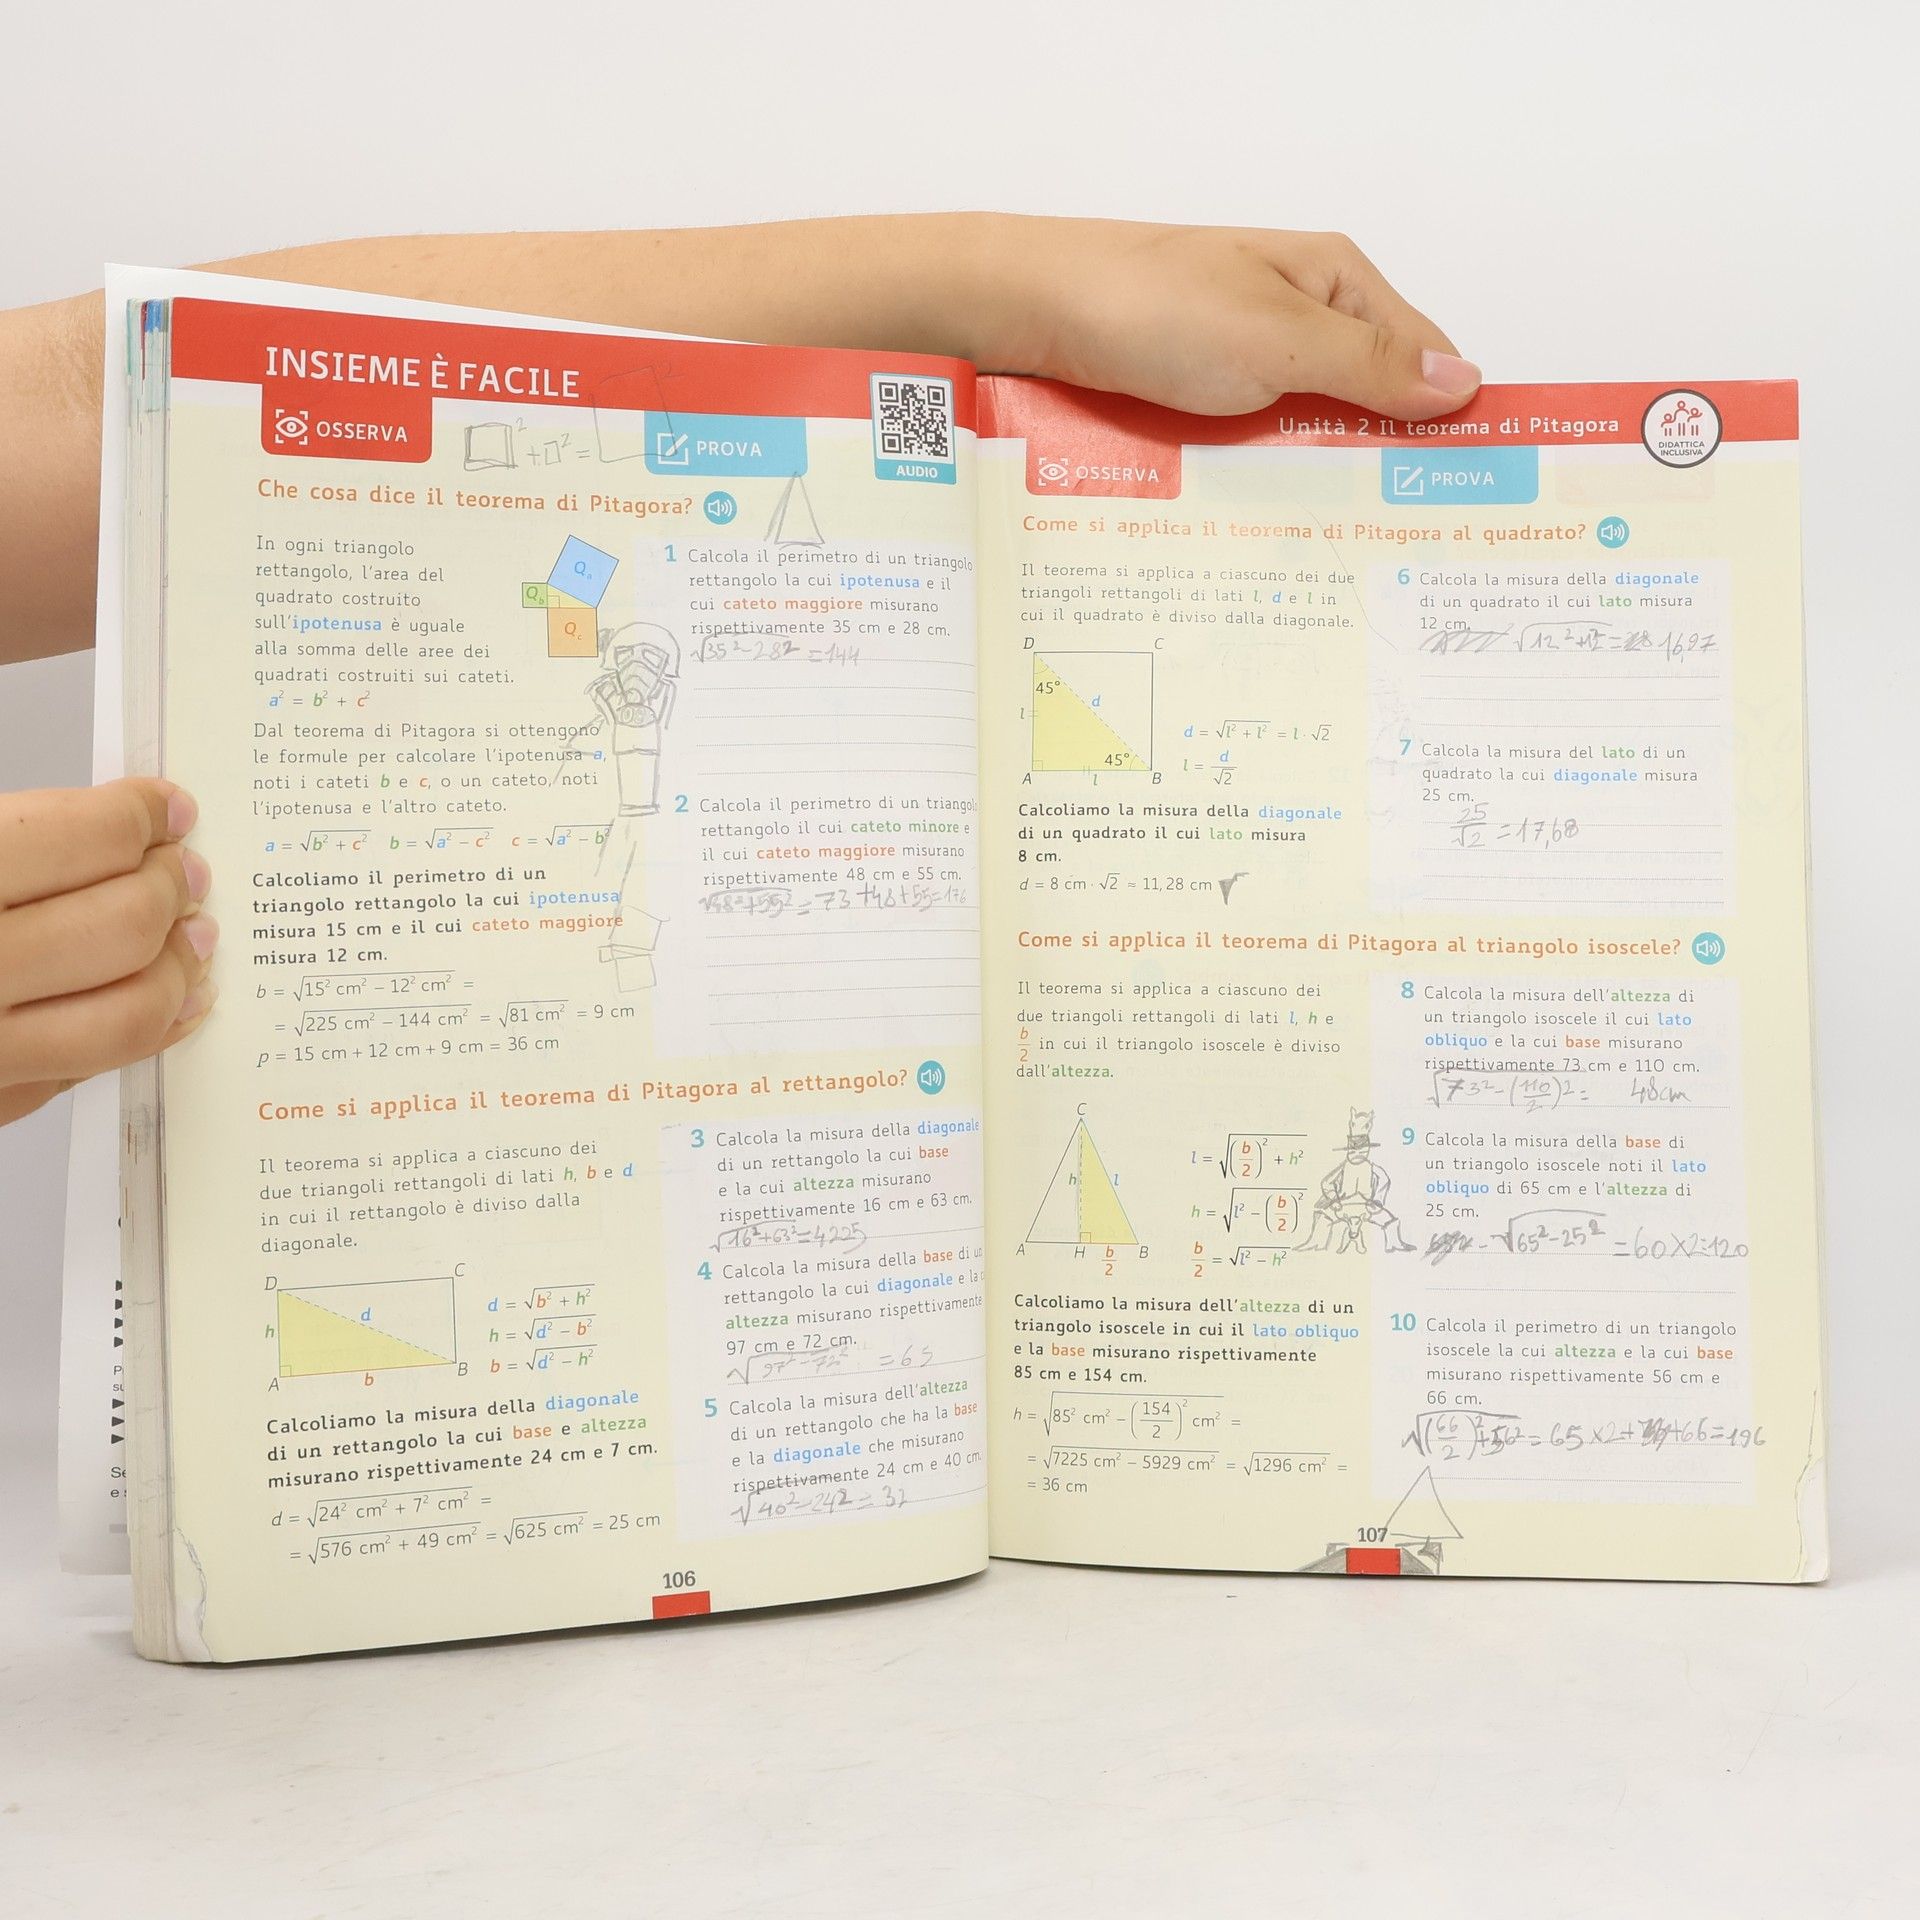 INSIEME È FACILE
OSSERVA
PROVA
AUDIO
Che cosa dice il teorema di Pitagora?
In ogni triangolo
rettangolo, l'area del
quadrato costruito
sull'ipotenusa è uguale
alla somma delle aree dei
quadrati costruiti sui cateti.
a² = b² + c²
Qa
Qb
Qc
Dal teorema di Pitagora si ottengono
le formule per calcolare l'ipotenusa a,
noti i cateti b e c, o un cateto, noti
l'ipotenusa e l'altro cateto.
a = √b² + c² b = √a² − c² c = √a² − b²
Calcoliamo il perimetro di un
triangolo rettangolo la cui ipotenusa
misura 15 cm e il cui cateto maggiore
misura 12 cm.
b = √15² cm² − 12² cm² =
= √225 cm² − 144 cm² = √81 cm² = 9 cm
p = 15 cm + 12 cm + 9 cm = 36 cm
1 Calcola il perimetro di un triangolo
rettangolo la cui ipotenusa e il
cui cateto maggiore misurano
rispettivamente 35 cm e 28 cm.
√35² - 28² = 144
2 Calcola il perimetro di un triangol
rettangolo il cui cateto minore e
il cui cateto maggiore misurano
rispettivamente 48 cm e 55 cm.
√48²+55² = 73 +48+55=176
Come si applica il teorema di Pitagora al rettangolo?
Il teorema si applica a ciascuno dei
due triangoli rettangoli di lati h, b e d
in cui il rettangolo è diviso dalla
diagonale.
D
C
h
d
A
b
B
d = √b² + h²
h = √d² − b²
b = √d² − h²
Calcoliamo la misura della diagonale
di un rettangolo la cui base e altezza
misurano rispettivamente 24 cm e 7 cm.
d = √24² cm² + 7² cm² =
= √576 cm² + 49 cm² = √625 cm² = 25 cm
3 Calcola la misura della diagonale
di un rettangolo la cui base
e la cui altezza misurano
rispettivamente 16 cm e 63 cm.
√16²+63²=4225
4 Calcola la misura della base di u
rettangolo la cui diagonale e la
altezza misurano rispettivamente
97 cm e 72 cm.
√97²-72² = 65
5 Calcola la misura dell'altezza
di un rettangolo che ha la base
e la diagonale che misurano
rispettivamente 24 cm e 40 cm.
√40²-24² = 32
106
Unità 2 Il teorema di Pitagora
DIDATTICA
INCLUSIVA
OSSERVA
PROVA
Come si applica il teorema di Pitagora al quadrato?
Il teorema si applica a ciascuno dei due
triangoli rettangoli di lati l, d e l in
cui il quadrato è diviso dalla diagonale.
D
C
45°
d
l
45°
A
l
B
d = √l² + l² = l · √2
l = d/√2
Calcoliamo la misura della diagonale
di un quadrato il cui lato misura
8 cm.
d = 8 cm · √2 ≈ 11,28 cm
6 Calcola la misura della diagonale
di un quadrato il cui lato misura
12 cm.
√12²+12² = 16,97
7 Calcola la misura del lato di un
quadrato la cui diagonale misura
25 cm.
25/√2 = 17,68
Come si applica il teorema di Pitagora al triangolo isoscele?
Il teorema si applica a ciascuno dei
due triangoli rettangoli di lati l, h e
b/2 in cui il triangolo isoscele è diviso
dall'altezza.
C
h
l
A
H
b/2
B
l = √(b/2)² + h²
h = √l² − (b/2)²
b/2 = √l² − h²
Calcoliamo la misura dell'altezza di un
triangolo isoscele in cui il lato obliquo
e la base misurano rispettivamente
85 cm e 154 cm.
h = √85² cm² − (154/2)² cm² =
= √7225 cm² − 5929 cm² = √1296 cm² =
= 36 cm
8 Calcola la misura dell'altezza di
un triangolo isoscele il cui lato
obliquo e la cui base misurano
rispettivamente 73 cm e 110 cm.
√73²-(110/2)² = 48cm
9 Calcola la misura della base di
un triangolo isoscele noti il lato
obliquo di 65 cm e l'altezza di
25 cm.
√65²-25² = 60×2=120
10 Calcola il perimetro di un triangolo
isoscele la cui altezza e la cui base
misurano rispettivamente 56 cm e
66 cm.
√(66/2)²+56² = 65×2+66=196
107